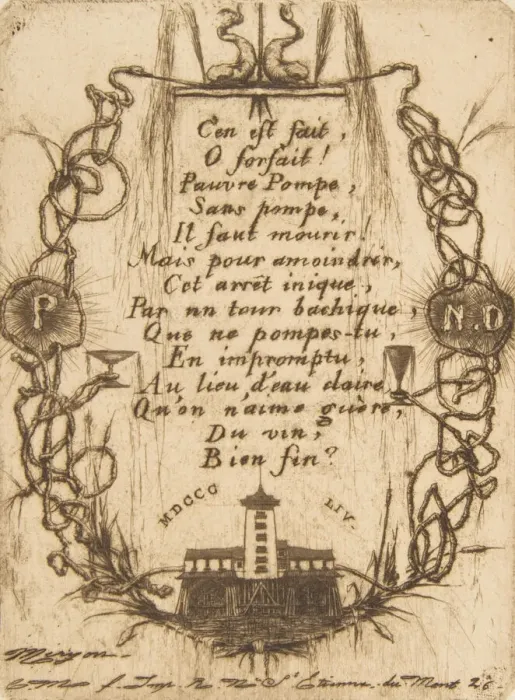 C'en est fait,
O forfait!
Pauvre Pompe,
Sans pompe,
Il faut mourir!
Mais pour amoindrir,
Cet arrêt inique,
Par un tour bachique,
Que ne pompes-tu,
En impromptu,
Au lieu d'eau claire
Qu'on n'aime guère,
Du vin,
Bien fin?
P
N.D
MDCCC LIV.
Meryon
C.M. f. Imp. R. N. St Etienne du Mont 26.